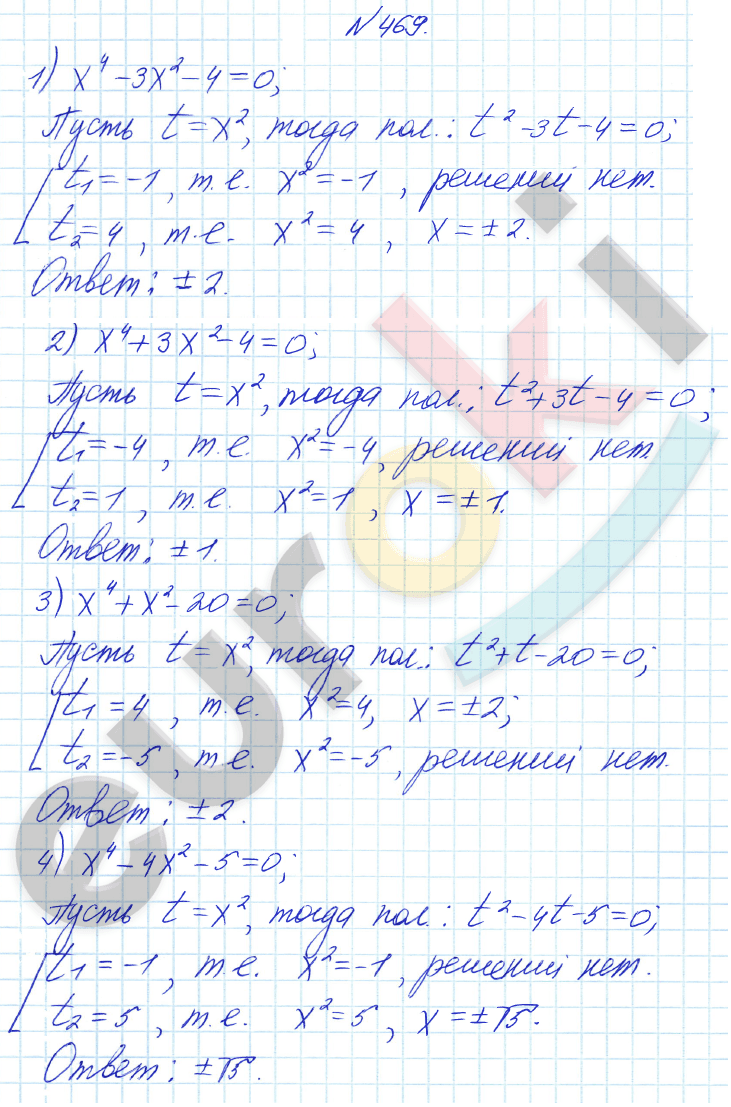 №469.
1) x⁴-3x²-4=0;
Пусть t=x², тогда пол.: t²-3t-4=0;
t₁=-1, т.е. x²=-1, решений нет.
t₂=4, т.е. x²=4, x=±2.
Ответ: ±2.
2) x⁴+3x²-4=0;
Пусть t=x², тогда пол.: t²+3t-4=0;
t₁=-4, т.е. x²=-4, решений нет.
t₂=1, т.е. x²=1, x=±1.
Ответ: ±1.
3) x⁴+x²-20=0;
Пусть t=x², тогда пол.: t²+t-20=0;
t₁=4, т.е. x²=4, x=±2;
t₂=-5, т.е. x²=-5, решений нет.
Ответ: ±2.
4) x⁴-4x²-5=0;
Пусть t=x², тогда пол.: t²-4t-5=0;
t₁=-1, т.е. x²=-1, решений нет.
t₂=5, т.е. x²=5, x=±√5.
Ответ: ±√5.
euroki